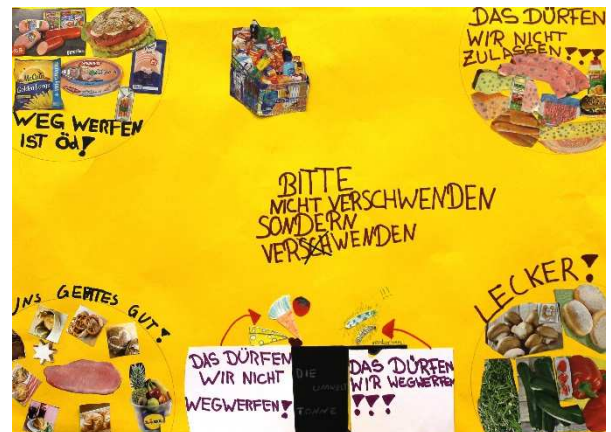 WEG WERFEN
IST Öd!
DAS DÜRFEN
WIR NICHT
ZULASSEN!!!
BITTE
NICHT VERSCHWENDEN
SONDERN
VERSCHWENDEN
UNS GEHTES GUT!
LECKER!
DAS DÜRFEN
WIR NICHT
WEGWERFEN!
DIE
UMWELT
TONNE
!!!
DAS DÜRFEN
WIR WEGWERFEN
!!!
McCain
Golden Longs